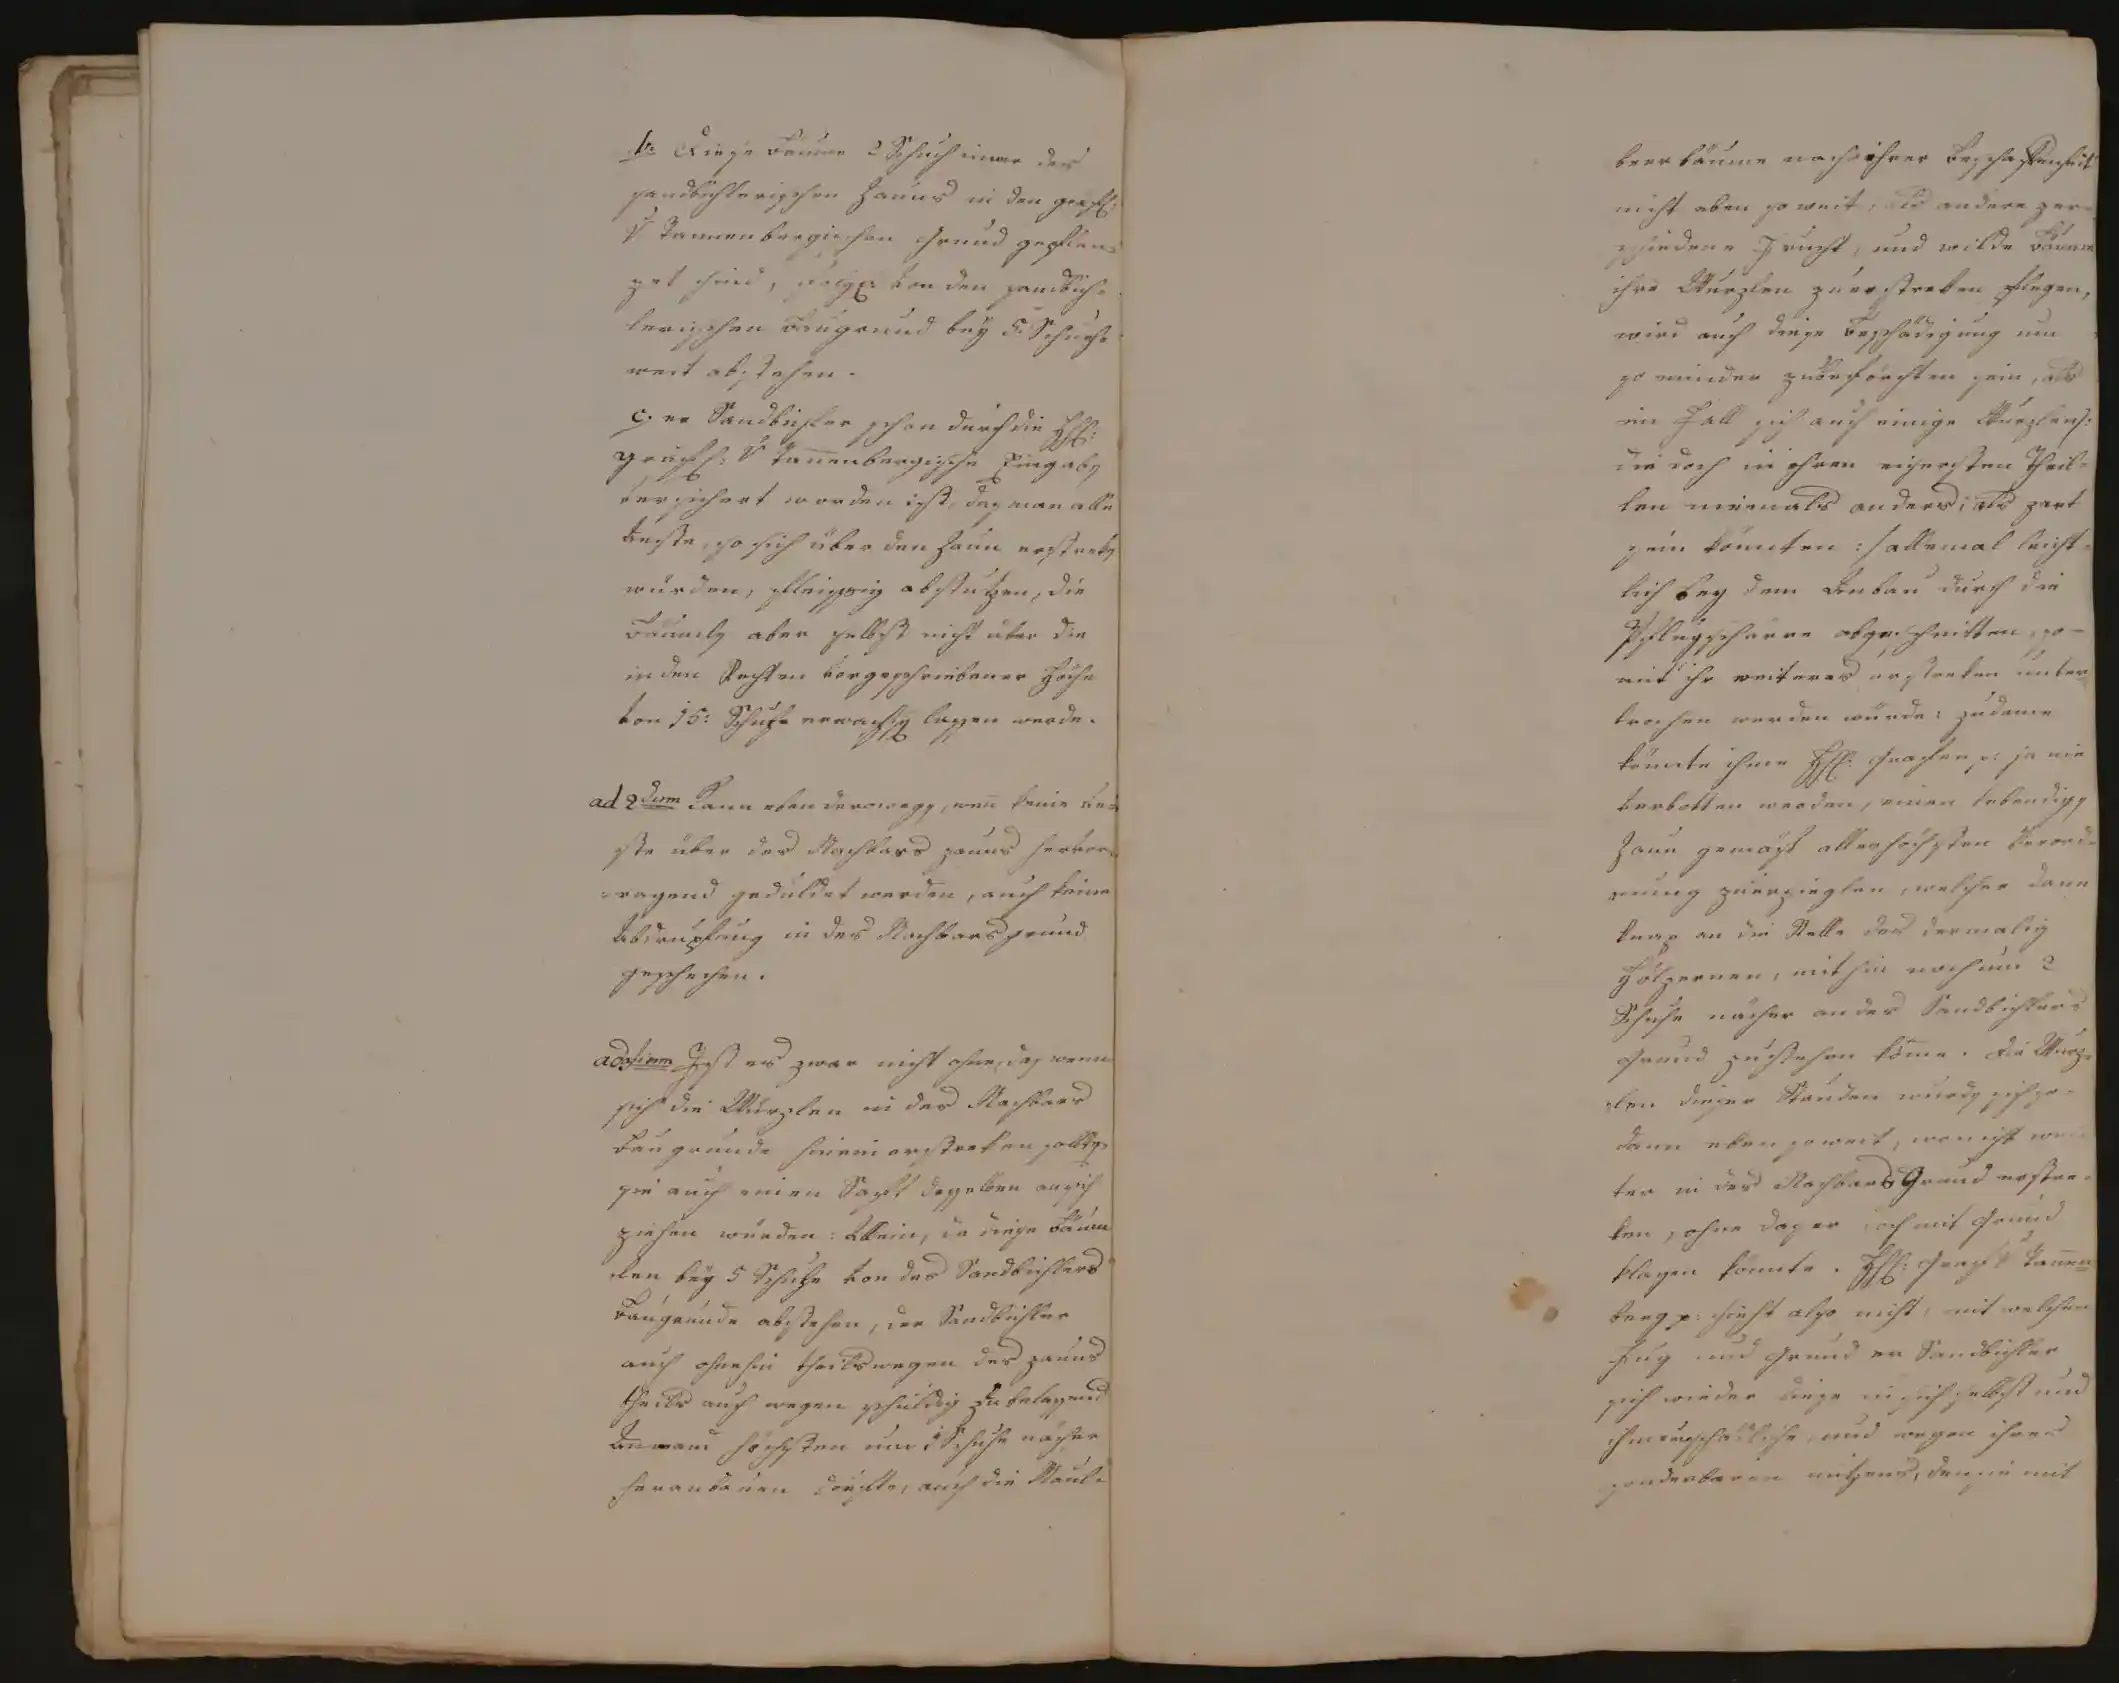 b: Diese Bäume 2 Schuch inner des
sandbichlerischen Zauns in den gräfl:
v Tannenbergischen Grund gepflan¬
zet sind, folgl: von den sandbich¬
lerischen Baugrund bey 5: Schuhe
weit abstehen.
c: er Sandbichler schon durch die Hhl:
gräfl: v Tannenbergische Eingaby
versichert worden ist, daß man alle
Aeste, so sich über den Zaun erstreky
wurden, fleissig abstutzen, die
Bäumly aber selbst nicht über die
in den Rechten vorgeschriebener Höhe
von 15: Schuhe erwachsy lassen werde.
ad 2dum Kann eben deroweg, wen keine Ae¬
ste über des Nachbars zauns hervor¬
ragend geduldet werden, auch keine
Abdrupfung in des Nachbars grund
geschehen.
ad 3tium Ist es zwar nicht ohne, daß wenn
sich die Wurzlen in des Nachbars
Baugrunde hinein erstreken sollty
sie auch einen Saft desselben an sich
ziehen wurden: Allein, da diese Bäum
len bey 5 Schuhe von des Sandbichlers
Baugrunde abstehen, der Sandbichler
auch ohnehin theils wegen des zauns
theils auch wegen schuldig zu belassend
Anwand höchsten um 1 Schuhe näher
heranbauen dürfte, auch die Maul¬
beerbäume nach ihrer Beschaffenheit
nicht eben so weit, als andere ver¬
schiedene Frucht, und wilde Bäume
ihre Wurzlen zu erstreken pflegen,
wird auch diese Beschädigung um
so minder zu beförchten sein, als
im Fall sich auch einige Wurzlen /:
die doch in ihren eisersten Theil¬
len niemals anders, als zart
sein könnten :/ allemal leicht¬
lich bey dem Anbau durch die
Pflugscharre abgeschnitten, so¬
mit ihr weiteres erstreken unter¬
brochen werden wurde: zudeme
könnte ihme Hhl: Grafen p: ja nie
verbotten werden, einen lebendigy
Zaun gemäß allerhöchsten Verord¬
nung zu erzieglen, welcher dann
knap an die Stelle des dermalig
hölzernen, mithin noch um 2
Schuhe näher an des Sandbichlers
Grund zu stehen köme. Die Wurz¬
len dieser Stauden wurdy sich so¬
dann eben so weit, wo nicht wei
ter in des Nachbars Grund erstre¬
ken, ohne daß er sich mit Grund
klagen könnte. Hhl: Graf v Tannen¬
berg p: sieht also nicht, mit welchen
Fug und Grund er Sandbichler
sich wieder diese in sich selbst und
ihm unschädliche, und wegen ihres
sonderbaren nutzens, den sie mit